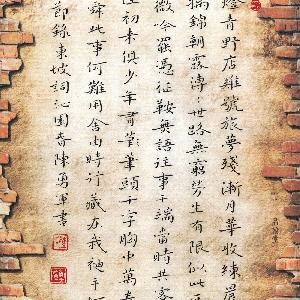 燈青野店雞號旅夢殘漸月華收練晨
摛錦朝露漙漙世路無窮勞生有限似此
微吟罷憑征鞍無語往事千端當時共客
初來俱少年有筆頭千字胸中萬
舜此事何難用舍由時行藏在我袖手何
節錄東坡詞沁園春陳勇軍書